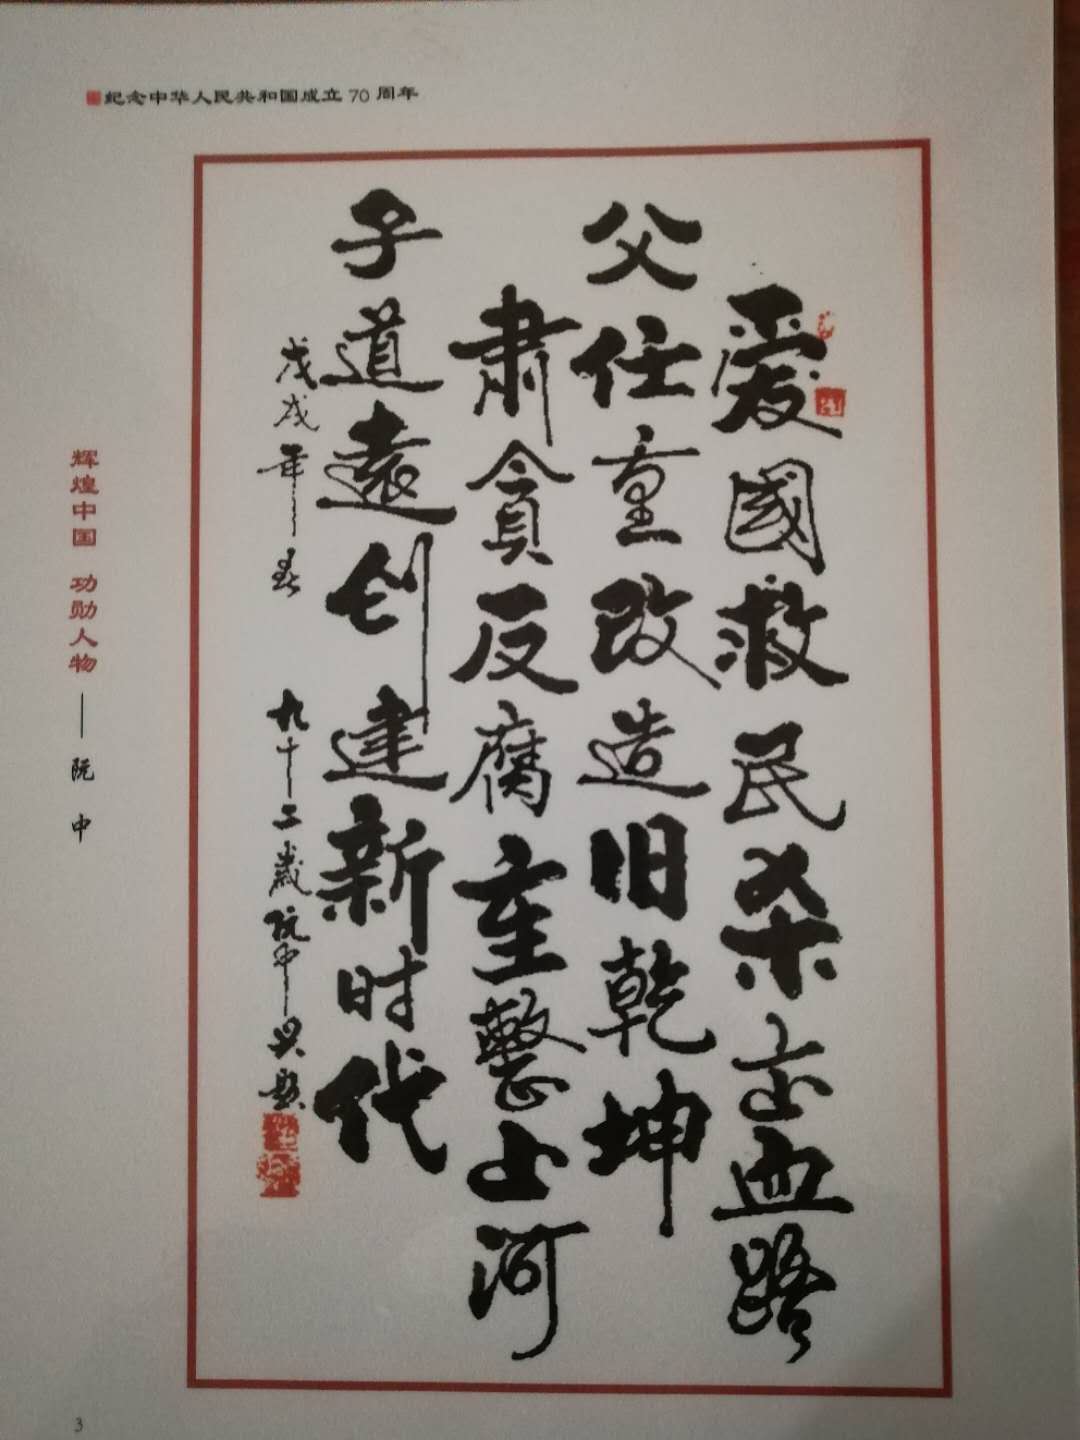 纪念中华人民共和国成立70周年
爱國救民杀出血路
父任重改造旧乾坤
肃贪反腐重整山河
子道遠创建新时代
戊戌年春 九十二歲阮中吴题
辉煌中国 功勋人物——阮中
3